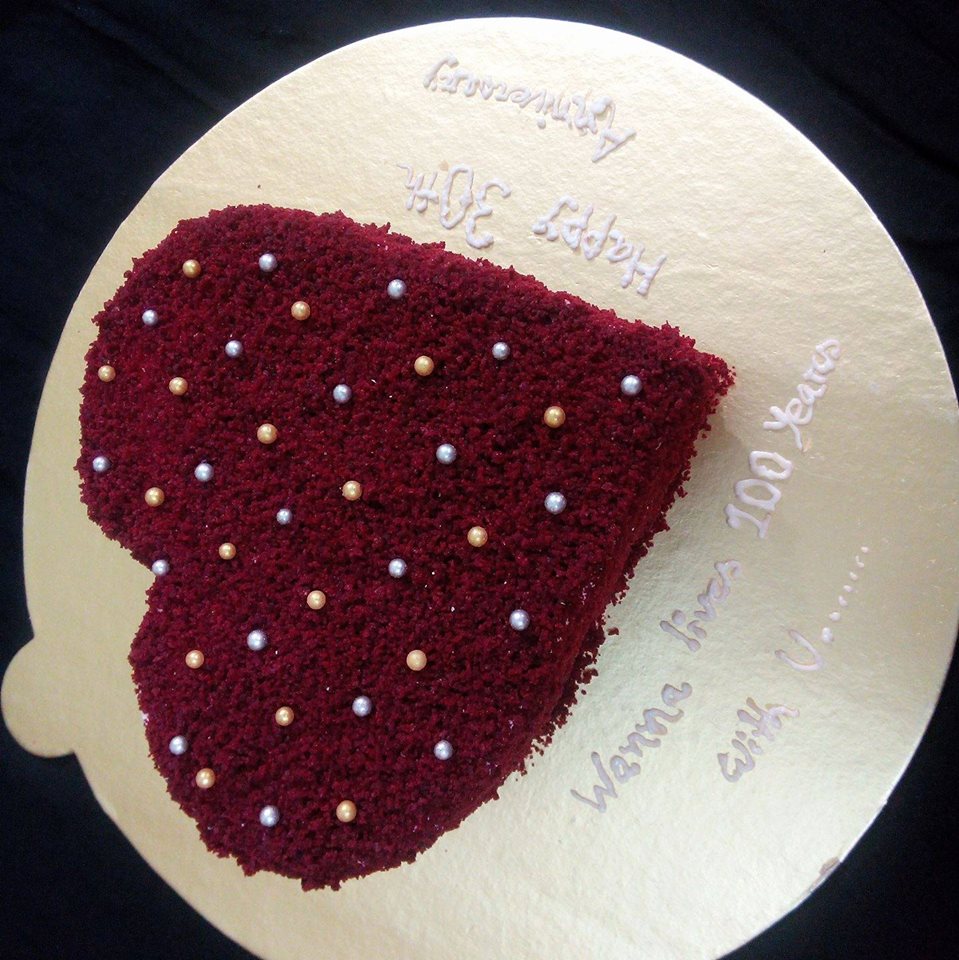 Happy 30th
Anniversary
Wanna lives 100 Years
with U.......